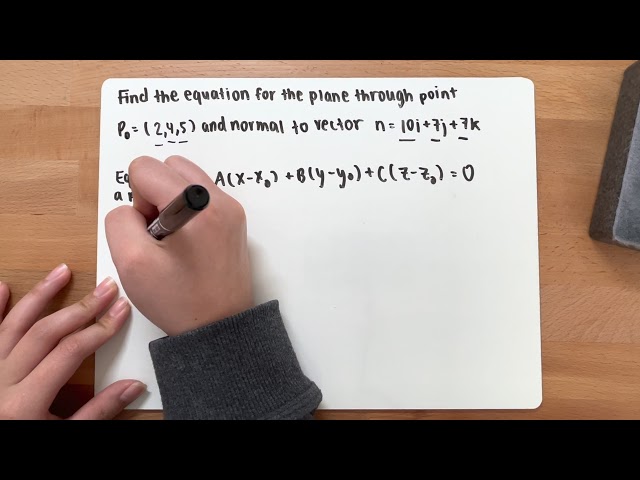 Find the equation for the plane through point
P₀ = (2,4,5) and normal to vector n = 10i+7j+7k
A(x-x₀) +B(y-y₀)+C(z-z₀) = 0
a